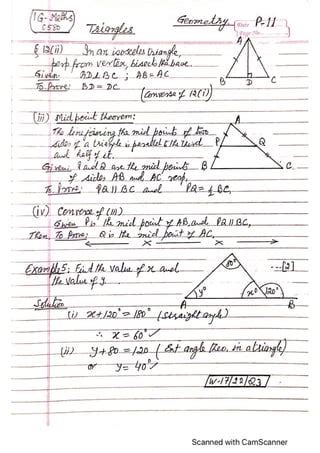 IG-Maths
C580
Triangles
Geometry
P-11
§ 12(ii) In an isosceles triangle,
perp from vertex, bisects the base.
Given: AD⊥BC ; AB=AC
To Prove: BD = DC
(Converse of 12(i))
A
B
D
C
(iii) Midpoint theorem:
The line joining the mid points of two
sides of a triangle is parallel to the third
and half of it.
Given: P and Q are the mid points
of sides AB and AC resp,
To Prove: PQ || BC and PQ = 1/2 BC,
A
P
Q
B
C
(iv) Converse of (iii)
Given P is the mid point of AB, and PQ || BC,
Then, To Prove: Q is the mid point of AC,
Examples: Find the value of x and
the value of y.
80°
y°
x°
120°
A
B
---[2]
Solution
(i) x+120° = 180° (straight angle)
∴ x = 60° ✓
(ii) y+80 = 120 (Ext angle theo. in a triangle)
or y = 40° ✓
W-17/22/Q3
Scanned with CamScanner